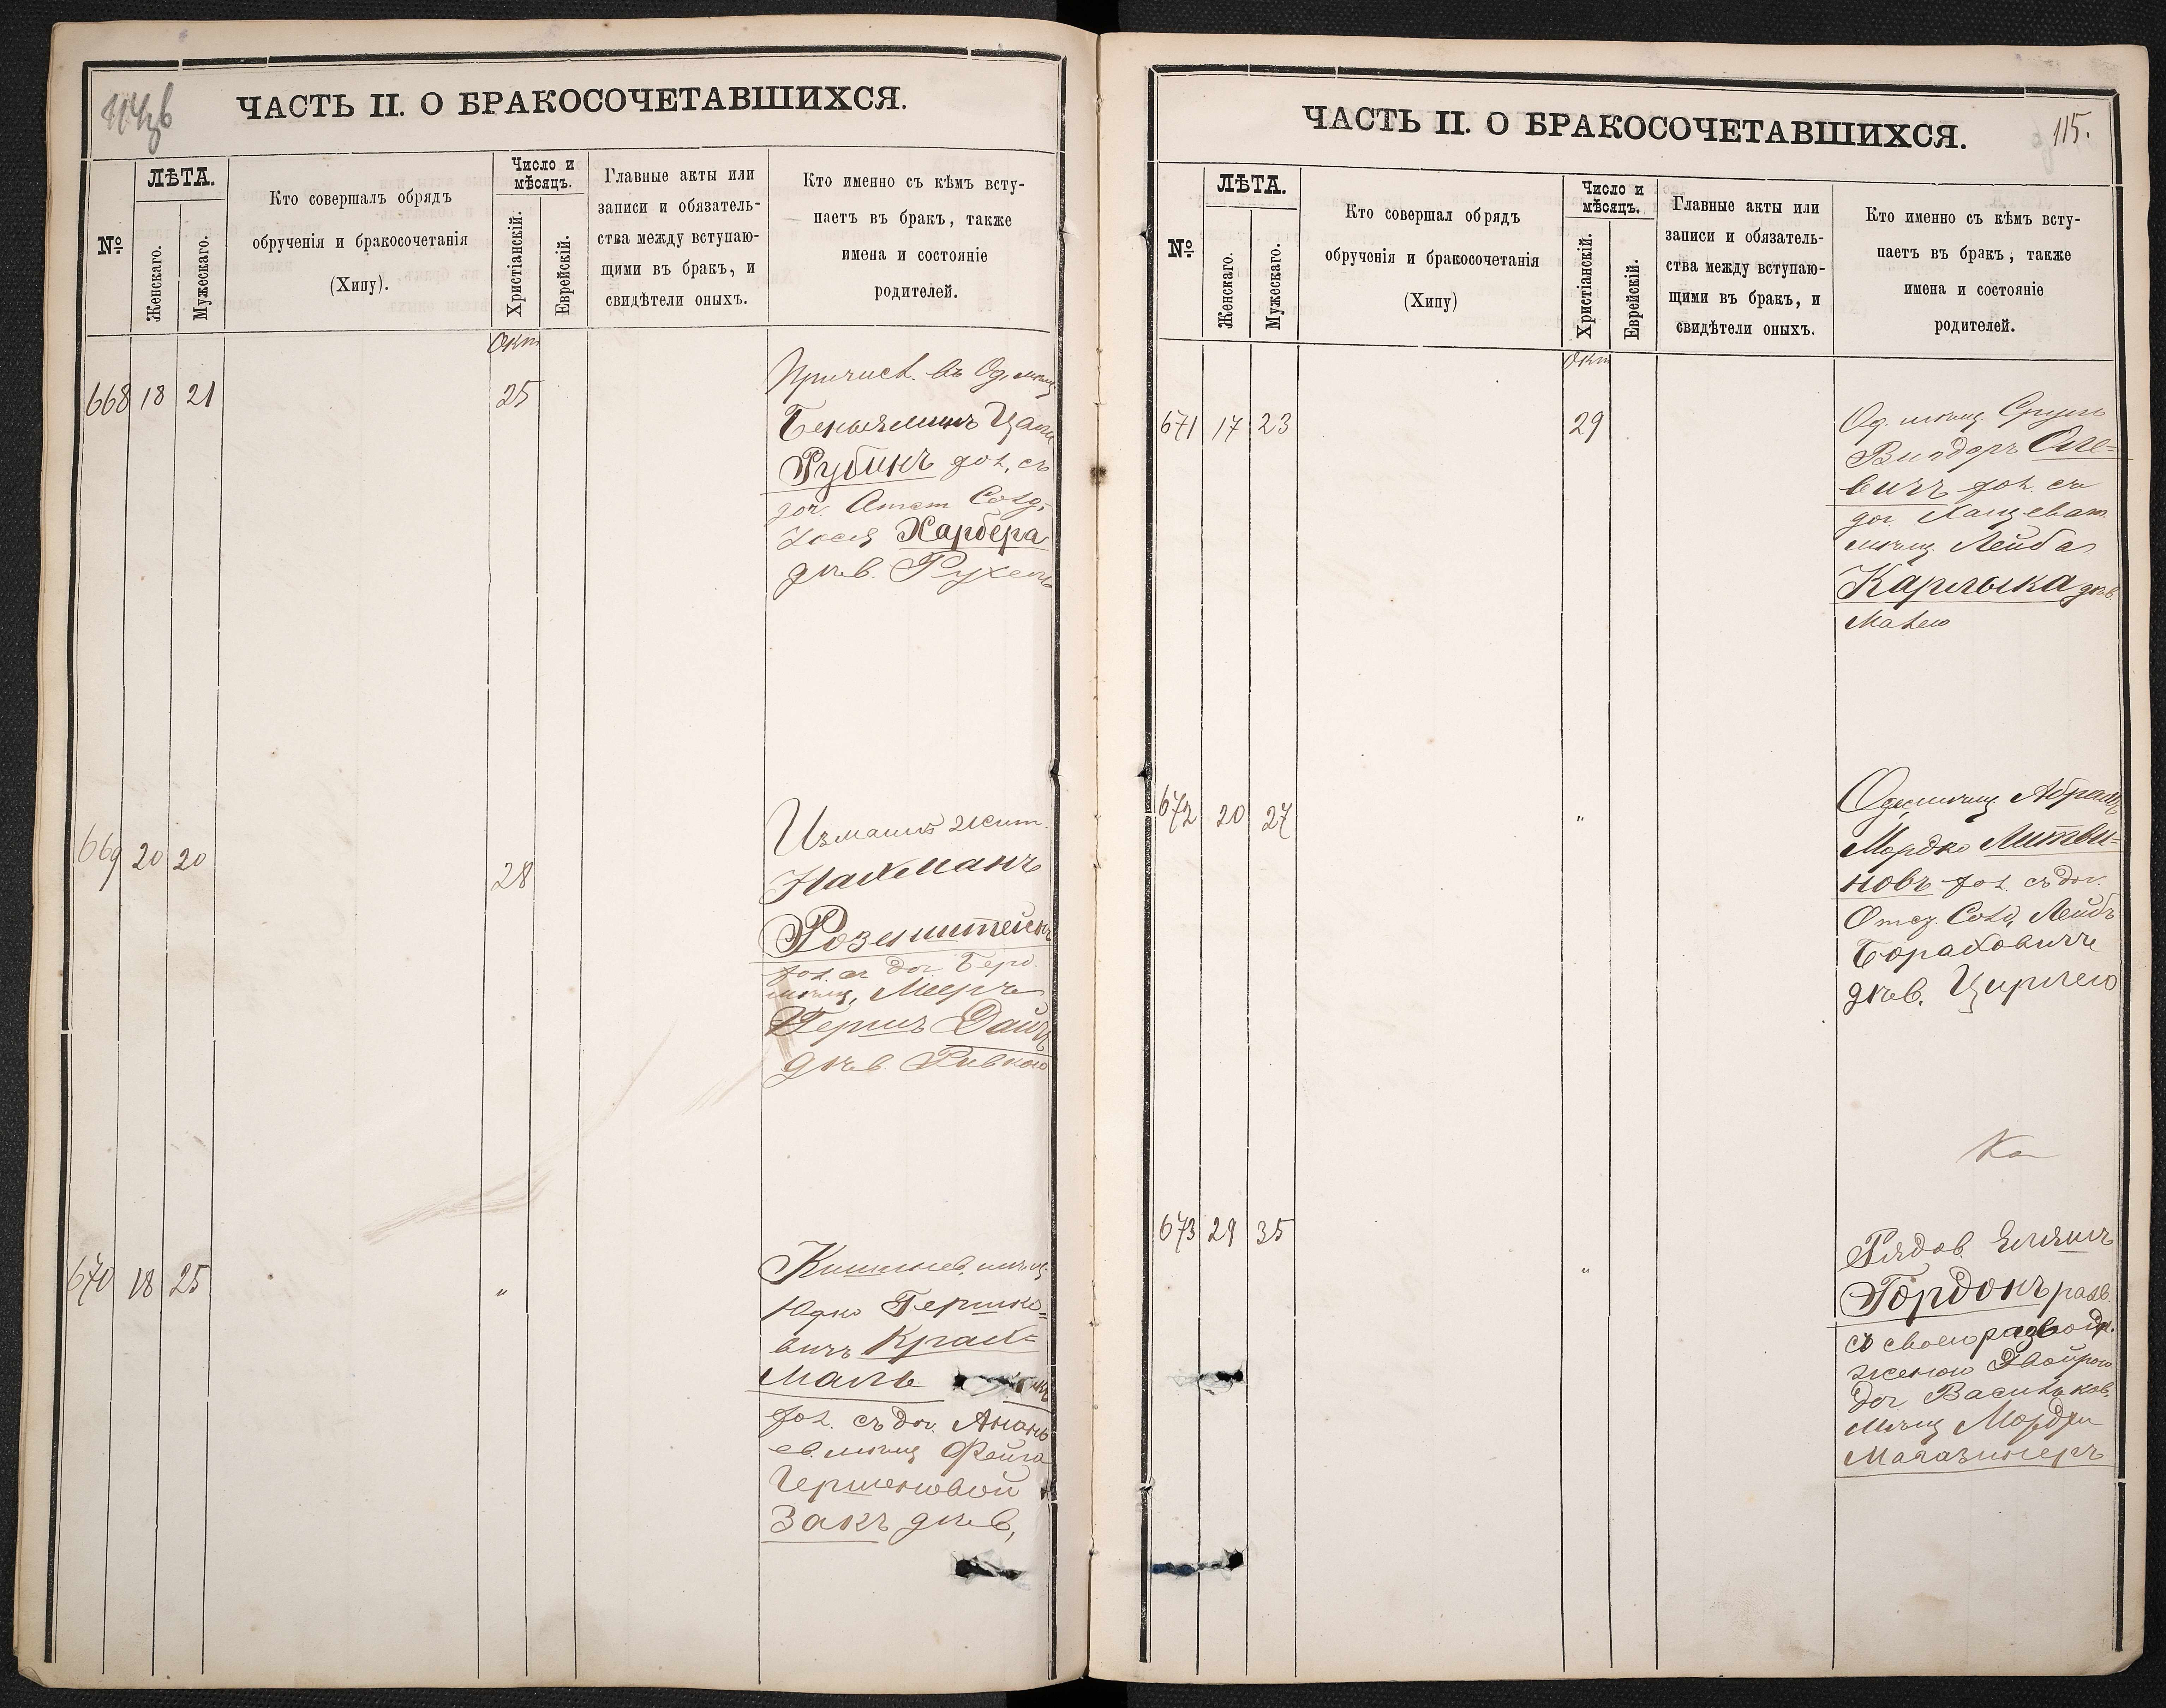 114об
ЧАСТЬ II. О БРАКОСОЧЕТАВШИХСЯ.
№
ЛѢТА.
Женскаго.
Мужескаго.
Кто совершалъ обрядъ
обрученія и бракосочетанія
(Хипу).
Число и
мѣсяцъ.
Христіанскій.
Еврейскій.
Главные акты или
записи и обязатель-
ства между вступаю-
щими въ бракъ, и
свидѣтели оныхъ.
Кто именно съ кѣмъ всту-
паетъ въ бракъ, также
имена и состояніе
родителей.
Окт
668 18 21 25
Причисл. въ Од. мѣщ.
Беньяминъ
Рубинъ хол. съ
доч. Солд.
Харбера
дѣв. Рухель
669 20 20 28
Измаил. жит.
Нахманъ
Розенштейнъ
хол. съ доч. Берд.
мѣщ. Мееръ
Гершъ Дайчъ
дѣв. Ривкою
670 18 25 "
Кишинев. мѣщ.
Юдко Гершко=
вичъ Краж=
маль
хол. съ доч. Анань
ев. мѣщ Фейга
Гершеновой
Закъ дѣв,
ЧАСТЬ II. О БРАКОСОЧЕТАВШИХСЯ.
115.
№
ЛѢТА.
Женскаго.
Мужескаго.
Кто совершал обрядъ
обрученія и бракосочетанія
(Хипу)
Число и
мѣсяцъ.
Христіанскій.
Еврейскій.
Главные акты или
записи и обязатель-
ства между вступаю-
щими въ бракъ, и
свидѣтели оныхъ.
Кто именно съ кѣмъ всту-
паетъ въ бракъ, также
имена и состояніе
родителей.
Окт
671 17 23 29
Од. мѣщ. Сруль
Вигдоръ Оле=
вичъ хол. съ
доч. Хащеват.
мѣщ. Лейба
Карлыка дѣв.
Малею
672 20 27 "
Одес. мѣщ. Абрамъ
Мордко Литви=
новъ хол. съ доч.
Отст. Солд. Лейбъ
Бораховичъ
дѣв. Цирлею
Ка
673 29 35 "
Рядов. Эльяшъ
Гордонъ разв.
съ своею разводн.
женою Двойрою
доч. Васильков.
мѣщ Мордхи
Магазинеръ